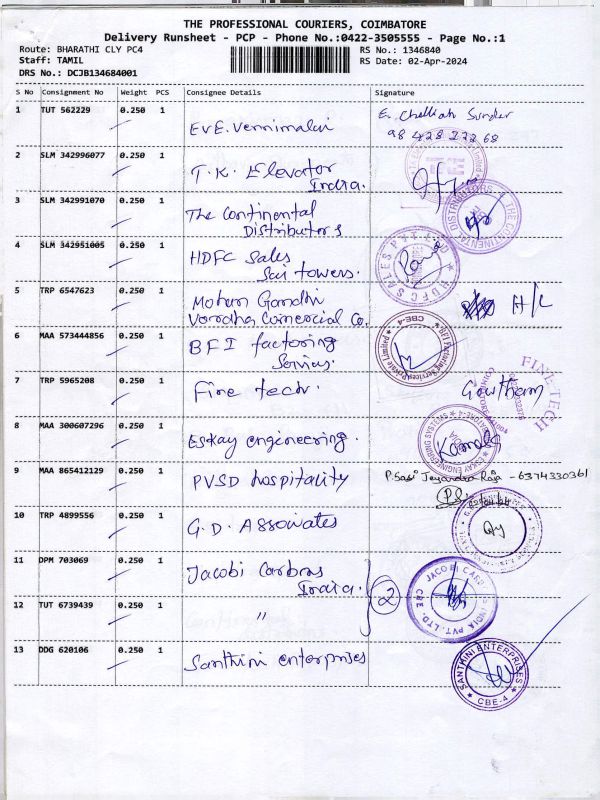 THE PROFESSIONAL COURIERS, COIMBATORE
Delivery Runsheet - PCP - Phone No.:0422-3505555 - Page No.:1
Route: BHARATHI CLY PC4 RS No.: 1346840
Staff: TAMIL RS Date: 02-Apr-2024
DRS No.: DCJB134684001
S No Consignment No Weight PCS Consignee Details Signature
1 TUT 562229 0.250 1 E. Chelliah Sunder
EVE. Vennimalai
2 SLM 342996077 0.250 1
T.K. Elevator
India.
3 SLM 342991070 0.250 1 The Continental
Distributors
THE CONTINENTAL DISTRIBUTORS
4 SLM 342951005 0.250 1 HDFC Sales
Sai towers.
HDFC SALES PVT LTD
5 TRP 6547623 0.250 1 Mohan Gandhi
Varadha Comercial Co.
6 MAA 573444856 0.250 1 BFI factoring
CBE-4
BFI Factoring Services Private Limited
7 TRP 5965208 0.250 1 Fine tech. Gowtham
FINE TECH
8 MAA 300607296 0.250 1 Eskay engineering. Kamala
ESKAY ENGINEERING SYSTEMS
9 MAA 865412129 0.250 1 PVSD hospitality P. Sasi Jeyandra Raja - 6374330361
10 TRP 4899556 0.250 1 G.D. Associates
11 DPM 703069 0.250 1 Jacobi Carbons
India. 2
JACOBI CARBONS INDIA PVT. LTD. CBE.
12 TUT 6739439 0.250 1 "
13 DDG 620106 0.250 1 Santhini enterprises
SANTHINI ENTERPRISES
CBE-4